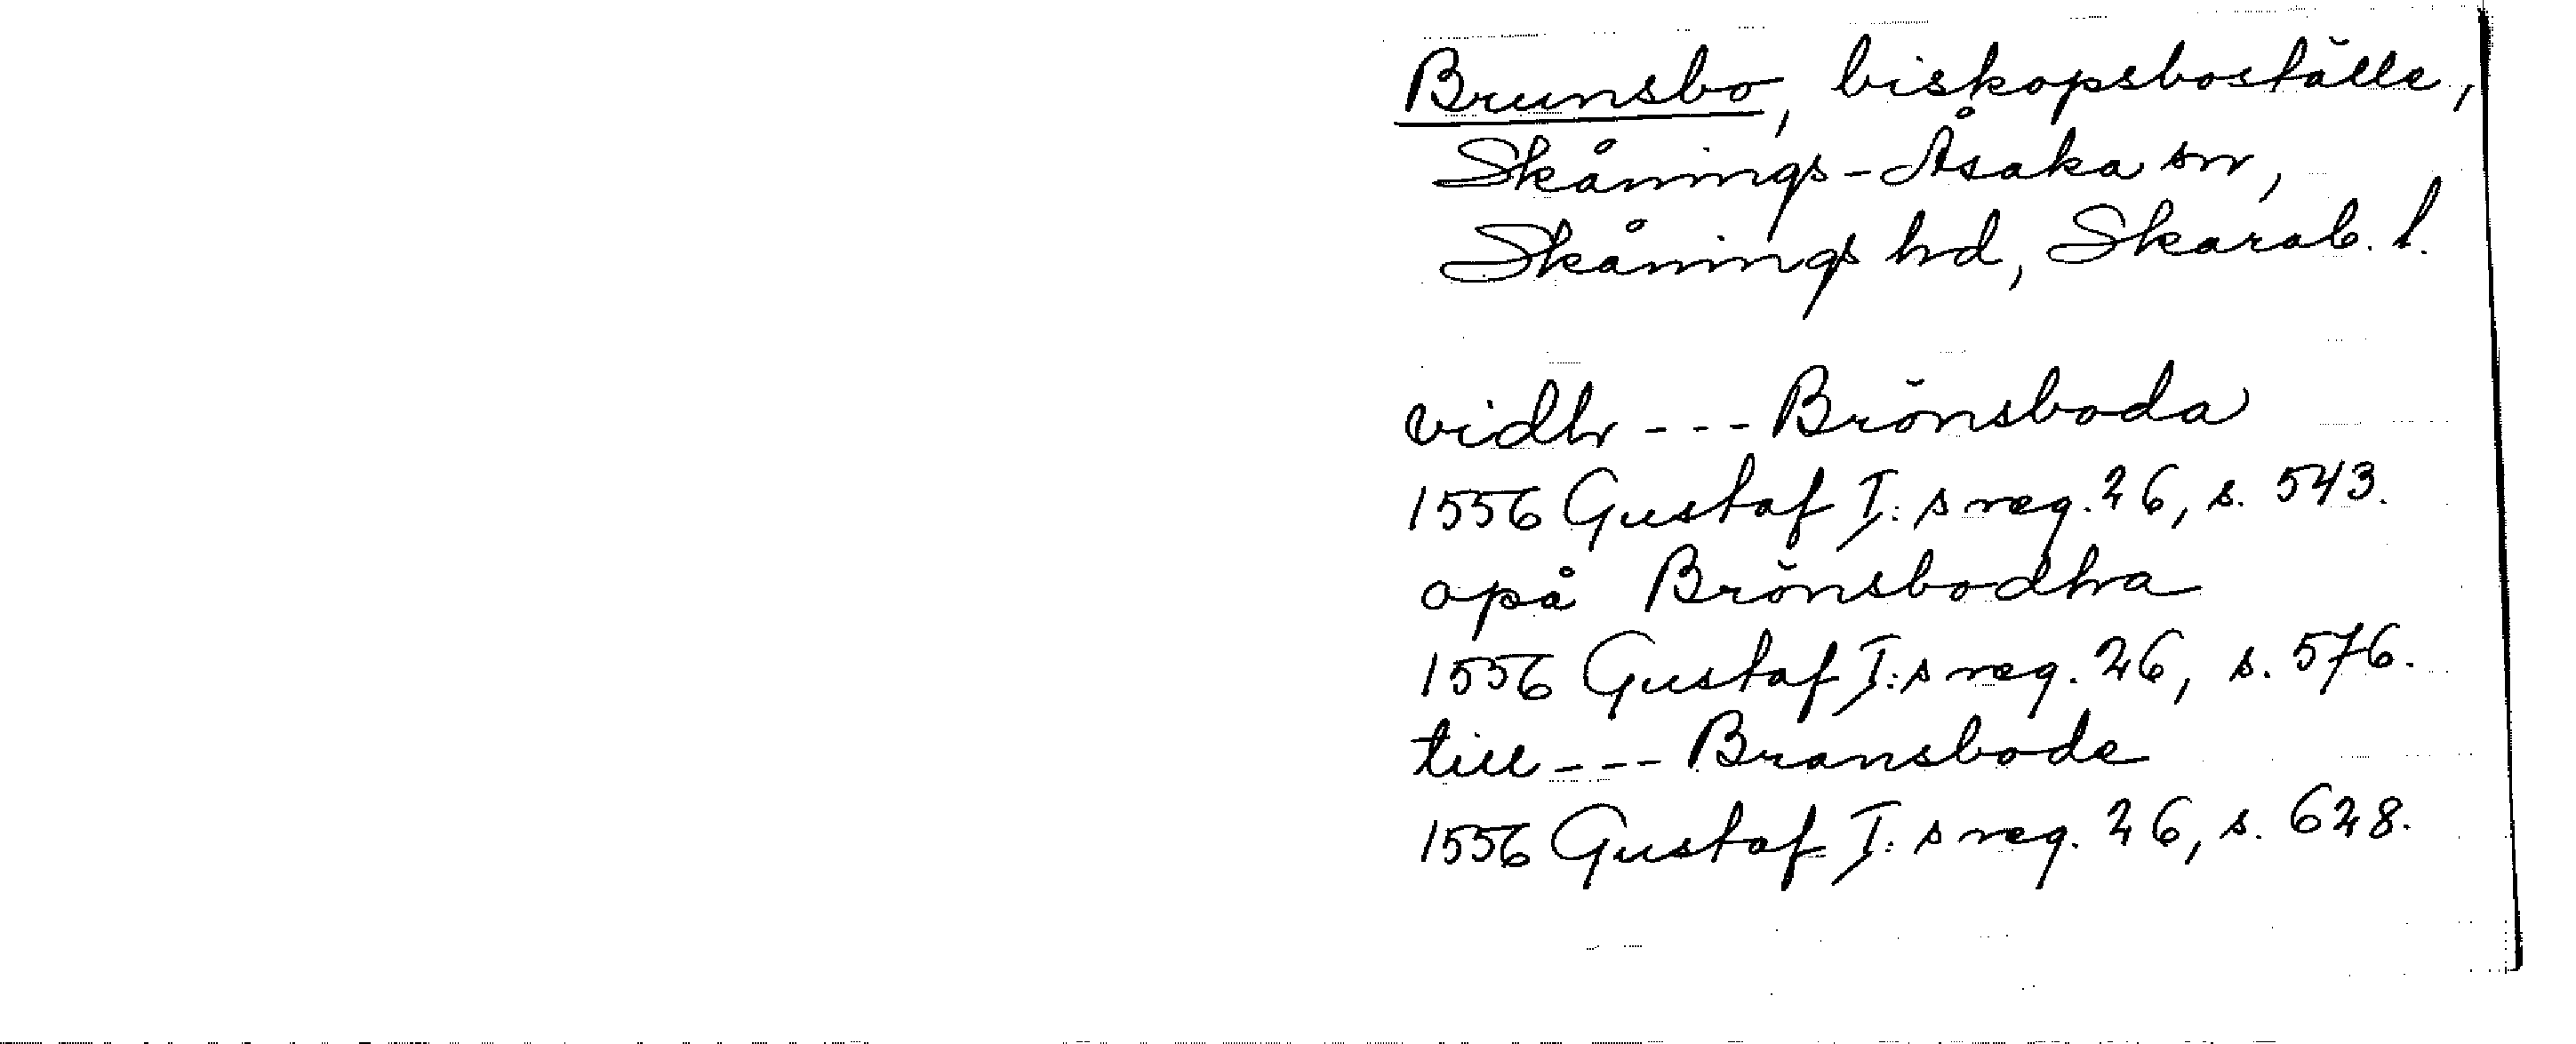 Brunsbo, biskopsboställe,
Skånings-Åsaka sn,
Skånings hd, Skarab. l.
vidh --- Brönsboda
1556 Gustaf I:s reg. 26, s. 543.
opå Brönsbodha
1556 Gustaf I:s reg. 26, s. 576.
till --- Bransbode
1556 Gustaf I:s reg. 26, s. 628.